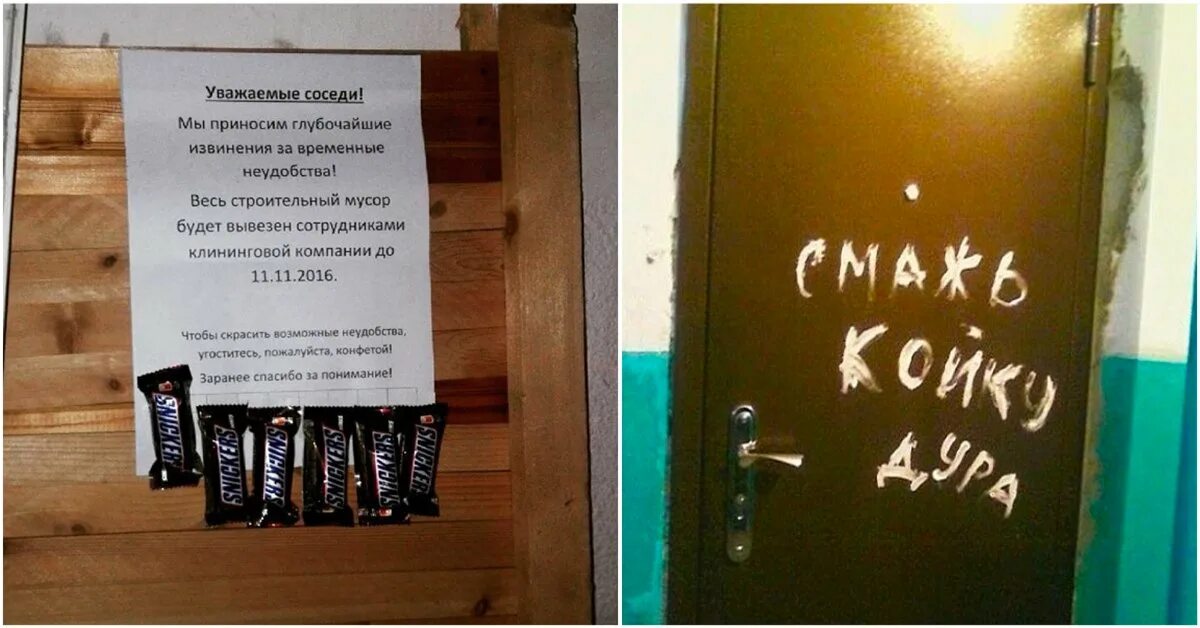 Уважаемые соседи!
Мы приносим глубочайшие
извинения за временные
неудобства!
Весь строительный мусор
будет вывезен сотрудниками
клининговой компании до
11.11.2016.
Чтобы скрасить возможные неудобства,
угоститесь, пожалуйста, конфетой!
Заранее спасибо за понимание!
SNICKERS
SNICKERS
SNICKERS
SNICKERS
SNICKERS
SNICKERS
СМАЖЬ
КОЙКУ
ДУРА